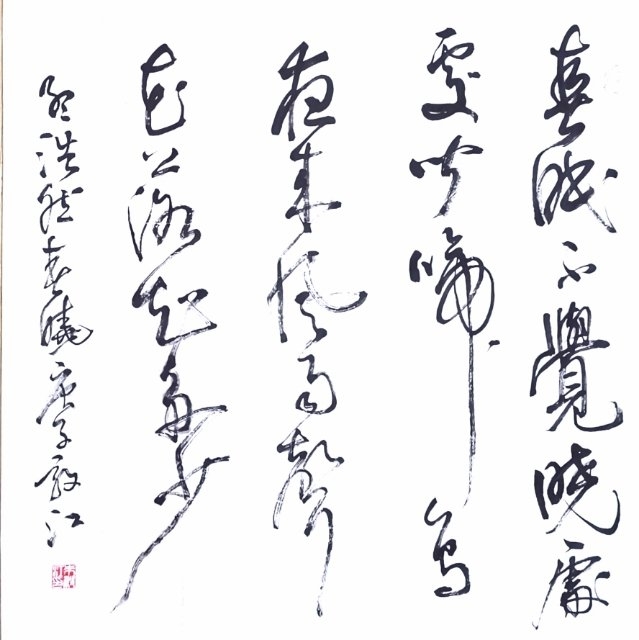 春眠不覺曉處
處聞啼鳥
夜來風雨聲
花落知多少
孟浩然春曉庚子江